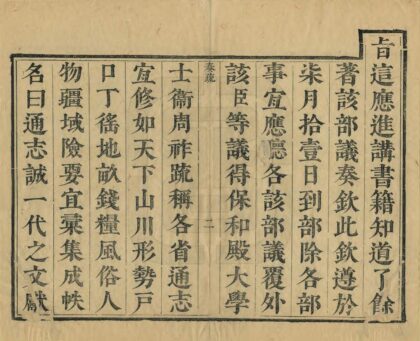 旨這應進講書籍知道了餘
著該部議奏欽此欽遵於
柒月拾壹日到部除各部
事宜應聽各該部議覆外
該臣等議得保和殿大學
奏疏
二
士衞周祚疏稱各省通志
宜修如天下山川形勢戸
口丁徭地畝錢糧風俗人
物疆域險要宜彚集成帙
名曰通志誠一代之文獻